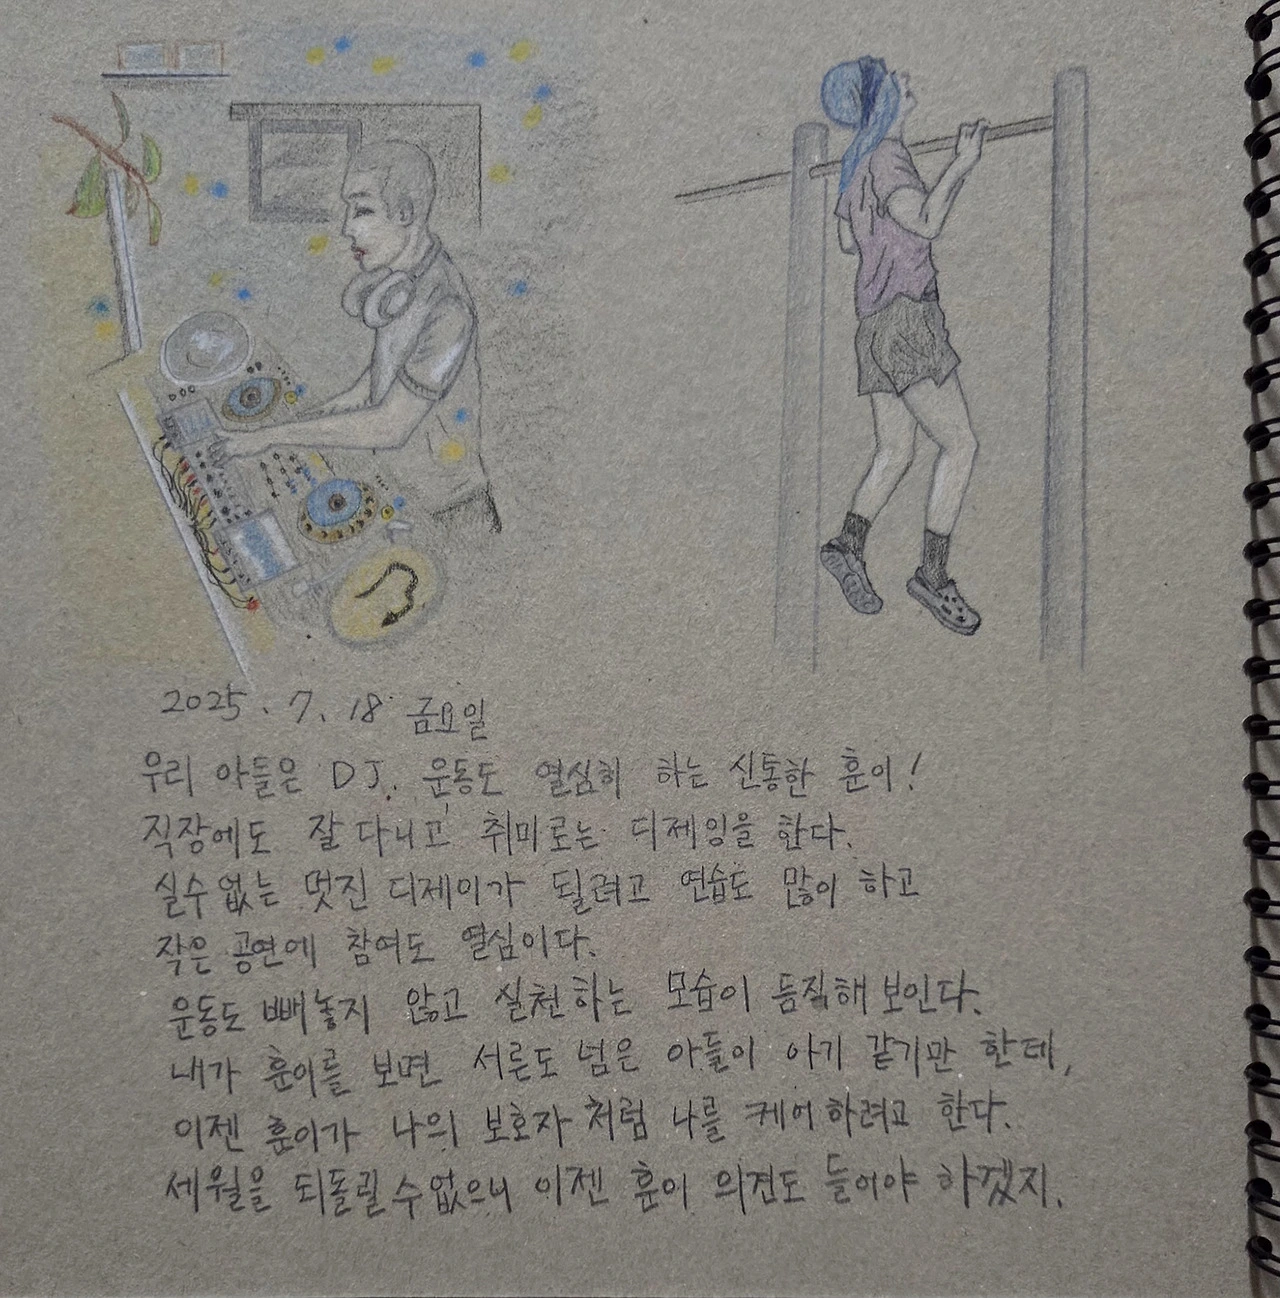 2025. 7. 18 금요일
우리 아들은 DJ. 운동도 열심히 하는 신통한 훈이!
직장에도 잘 다니고, 취미로는 디제잉을 한다.
실수없는 멋진 디제이가 될려고 연습도 많이 하고
작은 공연에 참여도 열심이다.
운동도 빼놓지 않고 실천하는 모습이 듬직해 보인다.
내가 훈이를 보면 서른도 넘은 아들이 아기 같기만 한데,
이젠 훈이가 나의 보호자 처럼 나를 케어하려고 한다.
세월을 되돌릴 수 없으니 이젠 훈이 의견도 들어야 하겠지.